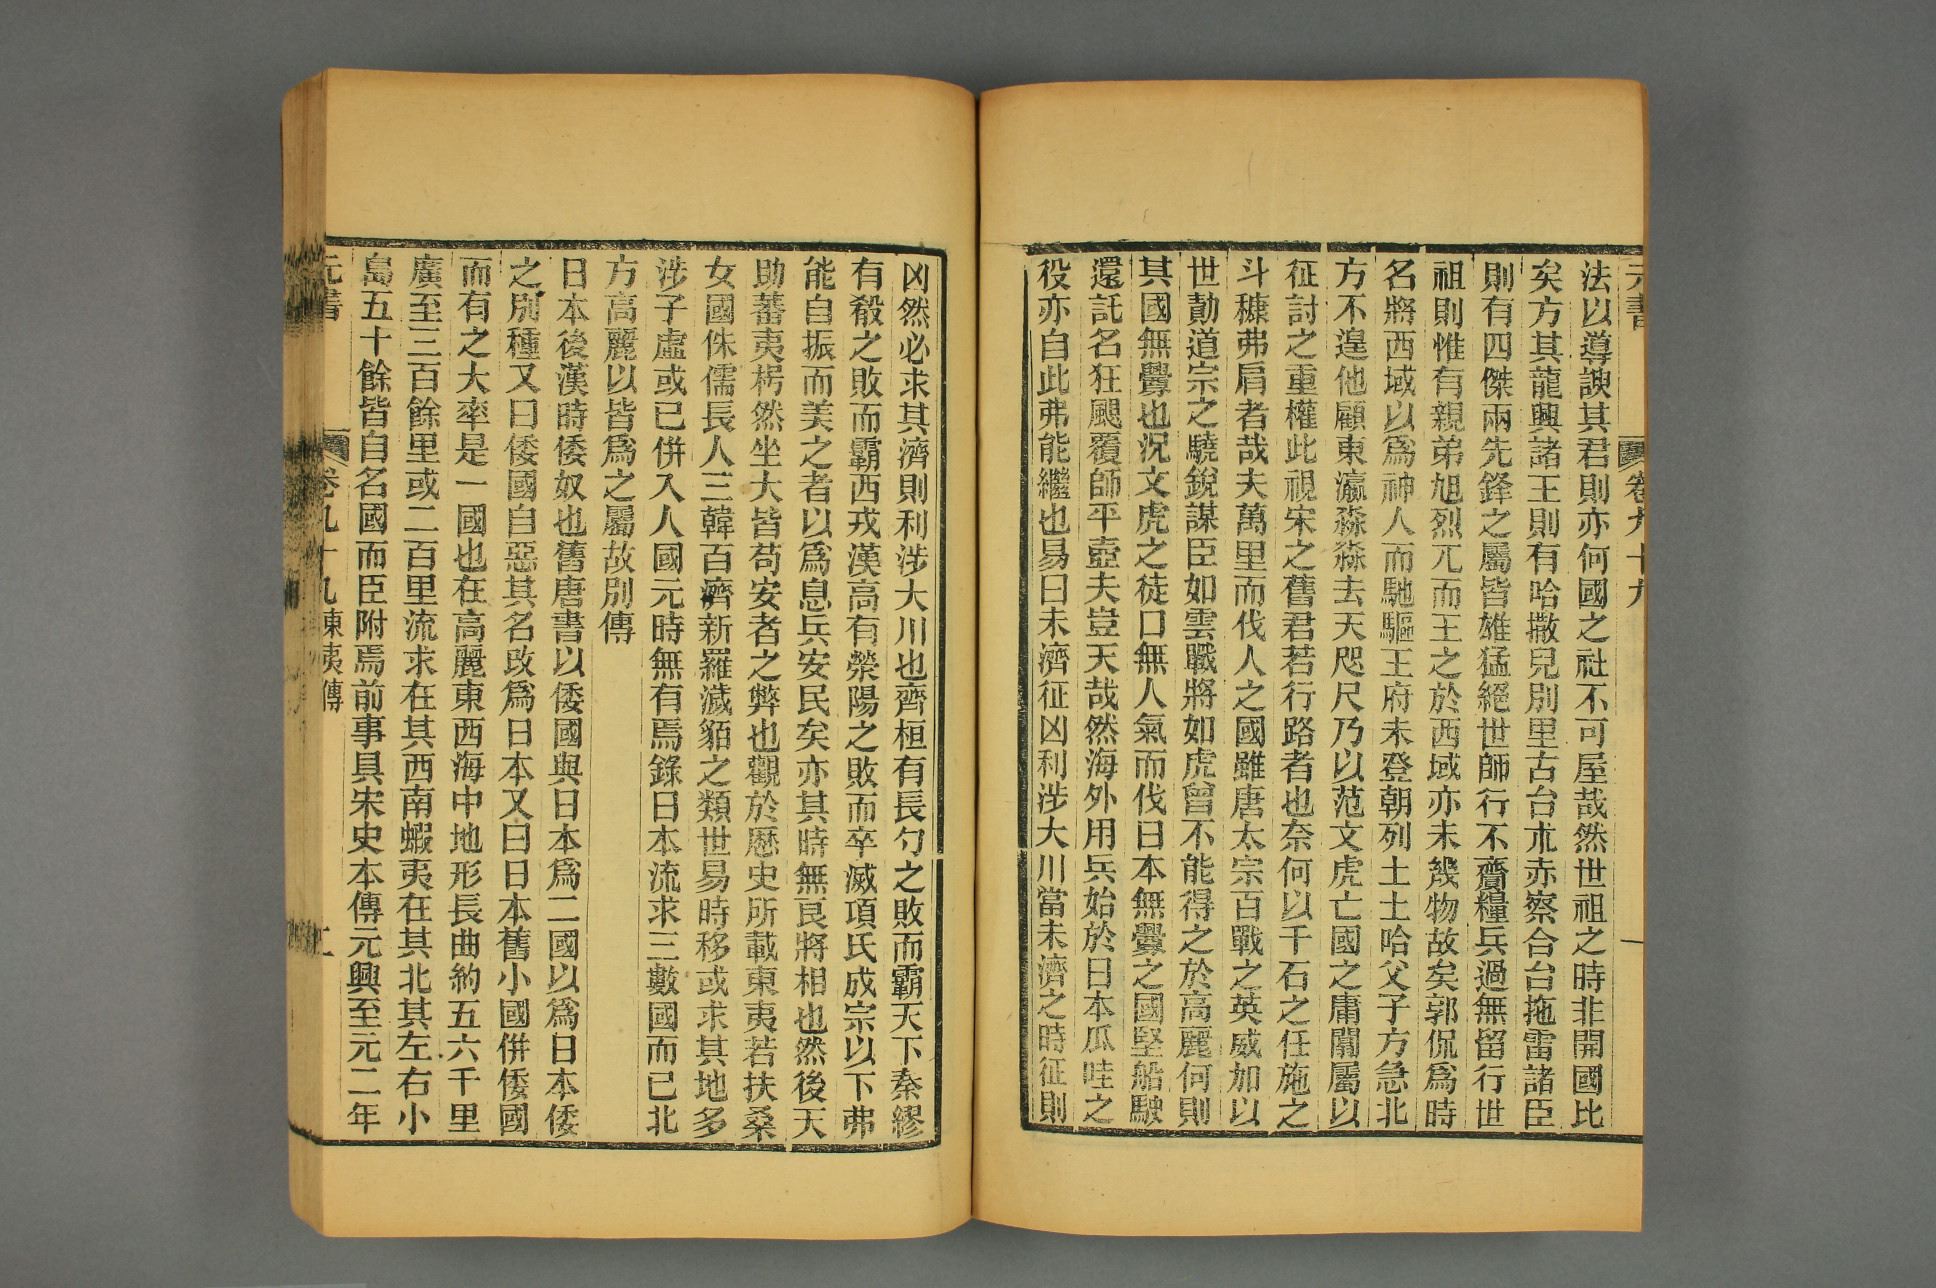 元書
卷九十九
一
法以導諛其君則亦何國之社不可屋哉然世祖之時非開國比
矣方其龍興諸王則有哈撒兒別里古台朮赤察合台拖雷諸臣
則有四傑兩先鋒之屬皆雄猛絕世師行不齎糧兵過無留行世
祖則惟有親弟旭烈兀而王之於西域亦未幾物故矣郭侃爲時
名將西域以爲神人而馳驅王府未登朝列土土哈父子方急北
方不遑他顧東瀛淼淼去天咫尺乃以范文虎亡國之庸閫屬以
征討之重權此視宋之舊君若行路者也奈何以千石之任施之
斗槺弗肩者哉夫萬里而伐人之國雖唐太宗百戰之英威加以
世勣道宗之驍銳謀臣如雲戰將如虎曾不能得之於高麗何則
其國無釁也況文虎之徒口無人氣而伐日本無釁之國堅船駛
還託名狂颶覆師平壺夫豈天哉然海外用兵始於日本瓜哇之
役亦自此弗能繼也易曰未濟征凶利涉大川當未濟之時征則
凶然必求其濟則利涉大川也齊桓有長勺之敗而霸天下秦繆
有殽之敗而霸西戎漢高有滎陽之敗而卒滅項氏成宗以下弗
能自振而美之者以爲息兵安民矣亦其時無良將相也然後天
助蕃夷枵然坐大皆苟安者之弊也觀於歷史所載東夷若扶桑
女國侏儒長人三韓百濟新羅濊貊之類世易時移或求其地多
涉子虛或已併入人國元時無有焉錄日本流求三數國而已北
方高麗以皆爲之屬故別傳
日本後漢時倭奴也舊唐書以倭國與日本爲二國以爲日本倭
之別種又曰倭國自惡其名改爲日本又曰日本舊小國併倭國
而有之大率是一國也在高麗東西海中地形長曲約五六千里
廣至三百餘里或二百里流求在其西南蝦夷在其北其左右小
島五十餘皆自名國而臣附焉前事具宋史本傳元興至元二年
元書
卷九十九東夷傳
二